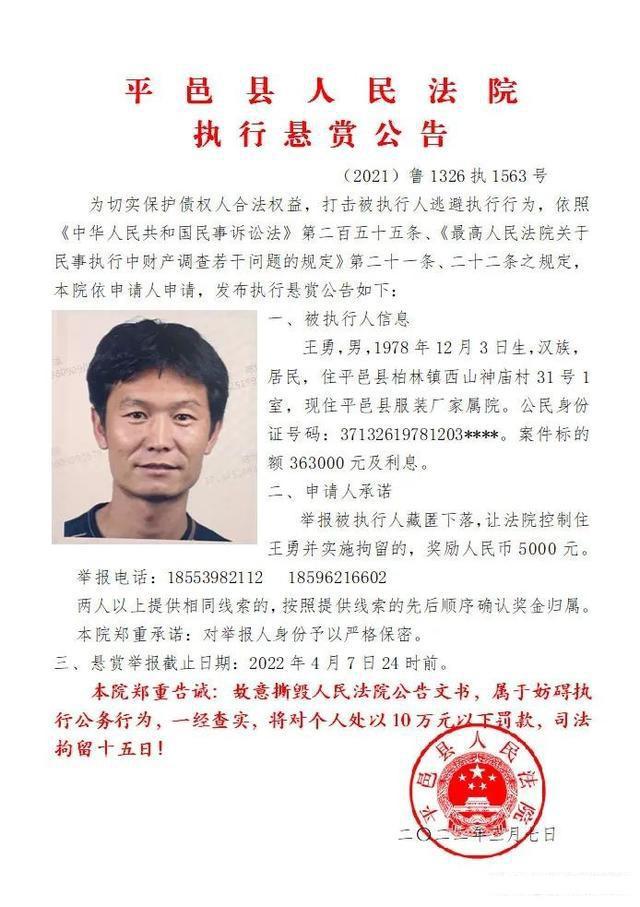 平邑县人民法院
执行悬赏公告
（2021）鲁 1326 执 1563 号
为切实保护债权人合法权益，打击被执行人逃避执行行为，依照
《中华人民共和国民事诉讼法》第二百五十五条、《最高人民法院关于
民事执行中财产调查若干问题的规定》第二十一条、二十二条之规定，
本院依申请人申请，发布执行悬赏公告如下：
一、被执行人信息
王勇，男，1978 年 12 月 3 日生，汉族，
居民，住平邑县柏林镇西山神庙村 31 号 1
室，现住平邑县服装厂家属院。公民身份
证号码：37132619781203****。案件标的
额 363000 元及利息。
二、申请人承诺
举报被执行人藏匿下落，让法院控制住
王勇并实施拘留的，奖励人民币 5000 元。
举报电话：18553982112 18596216602
两人以上提供相同线索的，按照提供线索的先后顺序确认奖金归属。
本院郑重承诺：对举报人身份予以严格保密。
三、悬赏举报截止日期：2022 年 4 月 7 日 24 时前。
本院郑重告诫：故意撕毁人民法院公告文书，属于妨碍执
行公务行为，一经查实，将对个人处以 10 万元以下罚款，司法
拘留十五日！
平邑县人民法院
二〇二二年三月七日